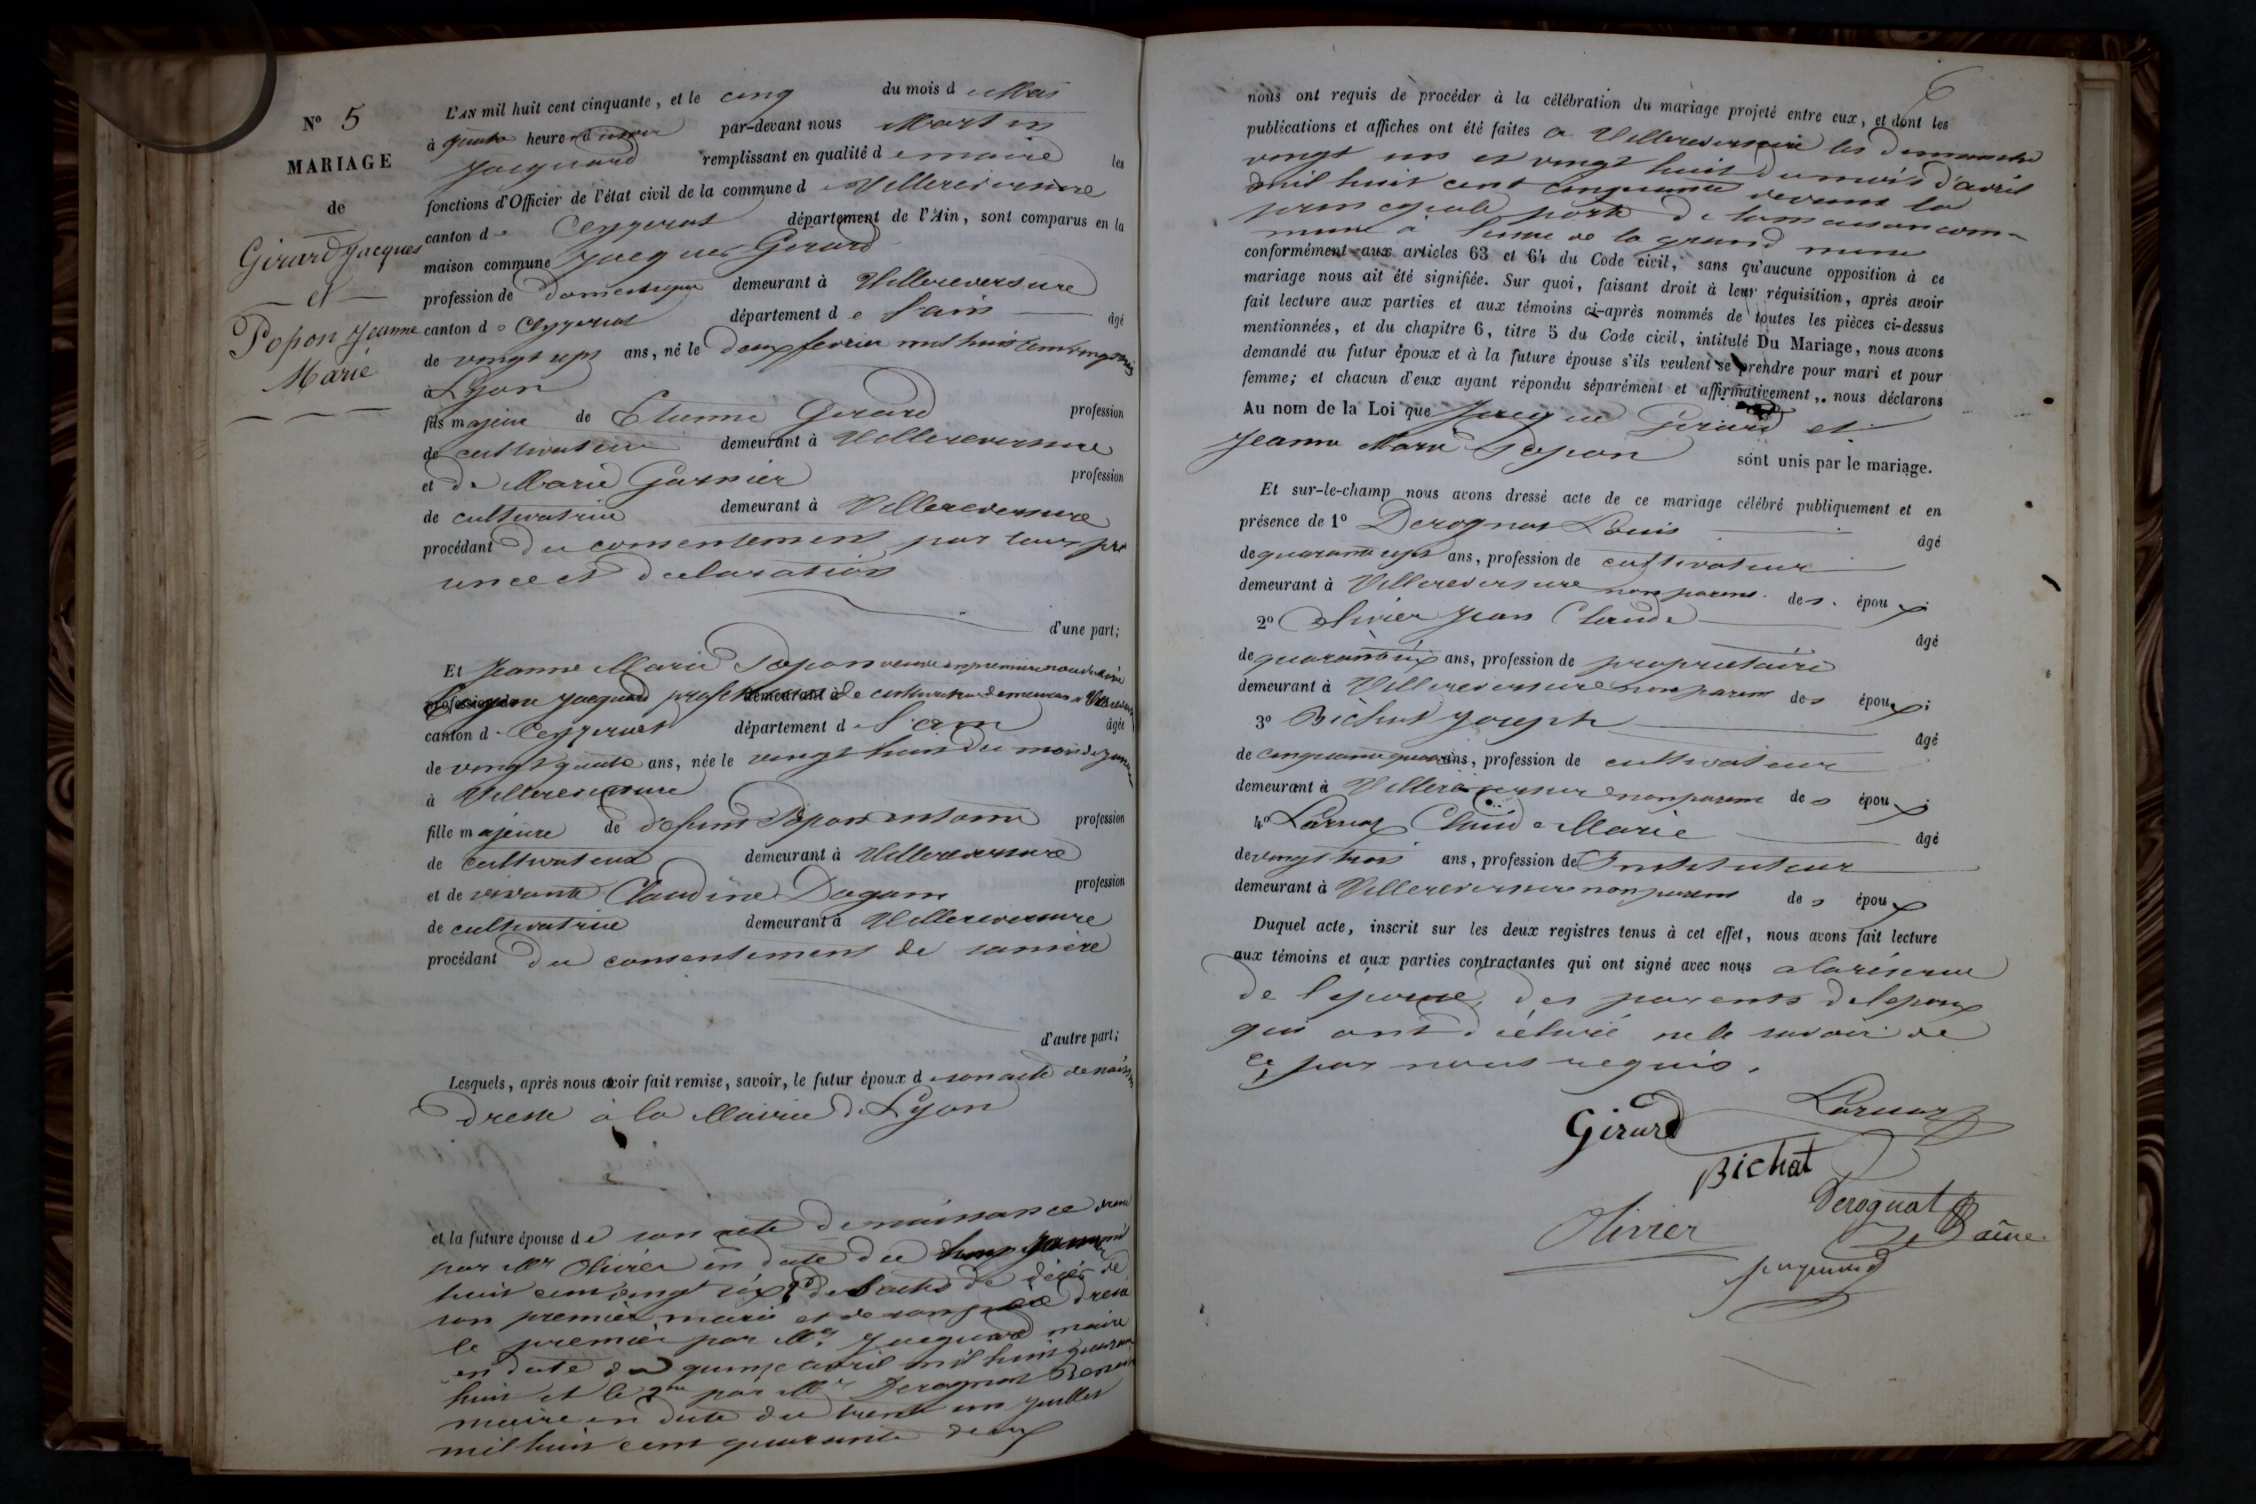 N° 5
MARIAGE
de
Girard Jacques
et
Popon Jeanne
Marie
L'AN mil huit cent cinquante, et le cinq du mois d e Mai
à quatre heure du soir par-devant nous Martin
Jacquard remplissant en qualité d e maire les
fonctions d'Officier de l'état civil de la commune d e Villereversure
canton d e Ceyzeriat département de l'Ain, sont comparus en la
maison commune Jacques Gerard
profession de domestique demeurant à Villereversure
canton d e Ceyzeriat département d e l'ain âgé
de vingt sept ans, né le deux fevrier mil huit cent vingt trois
à Lyon
fils majeur de Etienne Gerard profession
de cultivateur demeurant à Villereversure
et de Marie Garnier profession
de cultivatrice demeurant à Villereversure
procédant du consentement par leur pré
sence et déclaration
d'une part;
Et Jeanne Marie Popon veuve en premiere noce de
Jacquard profession de cultivatrice demeurant à Villereversure
canton d e Ceyzeriat département d e l'ain âgée
de vingt quatre ans, née le vingt huit du mois de janvier
à Villereversure
fille majeure de défunt Popon antoine profession
de cultivateur demeurant à Villereversure
et de vivante Claudine Dagam profession
de cultivatrice demeurant à Villereversure
procédant du consentement de sa mère
d'autre part;
Lesquels, après nous avoir fait remise, savoir, le futur époux d e son acte de naissance
dressé à la Mairie de Lyon
et la future épouse d e son acte de naissance dressé
par Mr Olivier en date du
huit cent vingt six 2° des actes de décès de
son premier mari et de son père dressé
le premier par Mr Jacquard maire
en date du quinze avril mil huit quarante
huit et le 2me par Mr Derognat
maire en date du trente un juillet
mil huit cent quarante deux
6
nous ont requis de procéder à la célébration du mariage projeté entre eux, et dont les
publications et affiches ont été faites à Villereversure les dimanche
vingt un et vingt huit du mois d'avril
mil huit cent cinquante devant la
principale porte de la maison com-
mune à l'issue de la grand messe
conformément aux articles 63 et 64 du Code civil, sans qu'aucune opposition à ce
mariage nous ait été signifiée. Sur quoi, faisant droit à leur réquisition, après avoir
fait lecture aux parties et aux témoins ci-après nommés de toutes les pièces ci-dessus
mentionnées, et du chapitre 6, titre 5 du Code civil, intitulé Du Mariage, nous avons
demandé au futur époux et à la future épouse s'ils veulent se prendre pour mari et pour
femme; et chacun d'eux ayant répondu séparément et affirmativement, nous déclarons
Au nom de la Loi que Jacque Girard et
Jeanne Marie Popon sont unis par le mariage.
Et sur-le-champ nous avons dressé acte de ce mariage célébré publiquement et en
présence de 1° Derognat Louis âgé
de quarante sept ans, profession de cultivateur
demeurant à Villereversure non parent des époux;
2° Olivier Jean Claude âgé
de quarante six ans, profession de propriétaire
demeurant à Villereversure non parent des époux;
3° Bichat Joseph âgé
de cinquante quatre ans, profession de cultivateur
demeurant à Villereversure non parent des époux;
4° Larnaz Claude Marie âgé
de vingt trois ans, profession de Instituteur
demeurant à Villereversure non parent des époux
Duquel acte, inscrit sur les deux registres tenus à cet effet, nous avons fait lecture
aux témoins et aux parties contractantes qui ont signé avec nous à la réserve
de l'épouse, des parents de l'époux
qui ont déclaré ne le savoir de
ce par nous requis.
Girard Larnaz
Bichat
Derognat
Olivier Le Maire
Jacquard